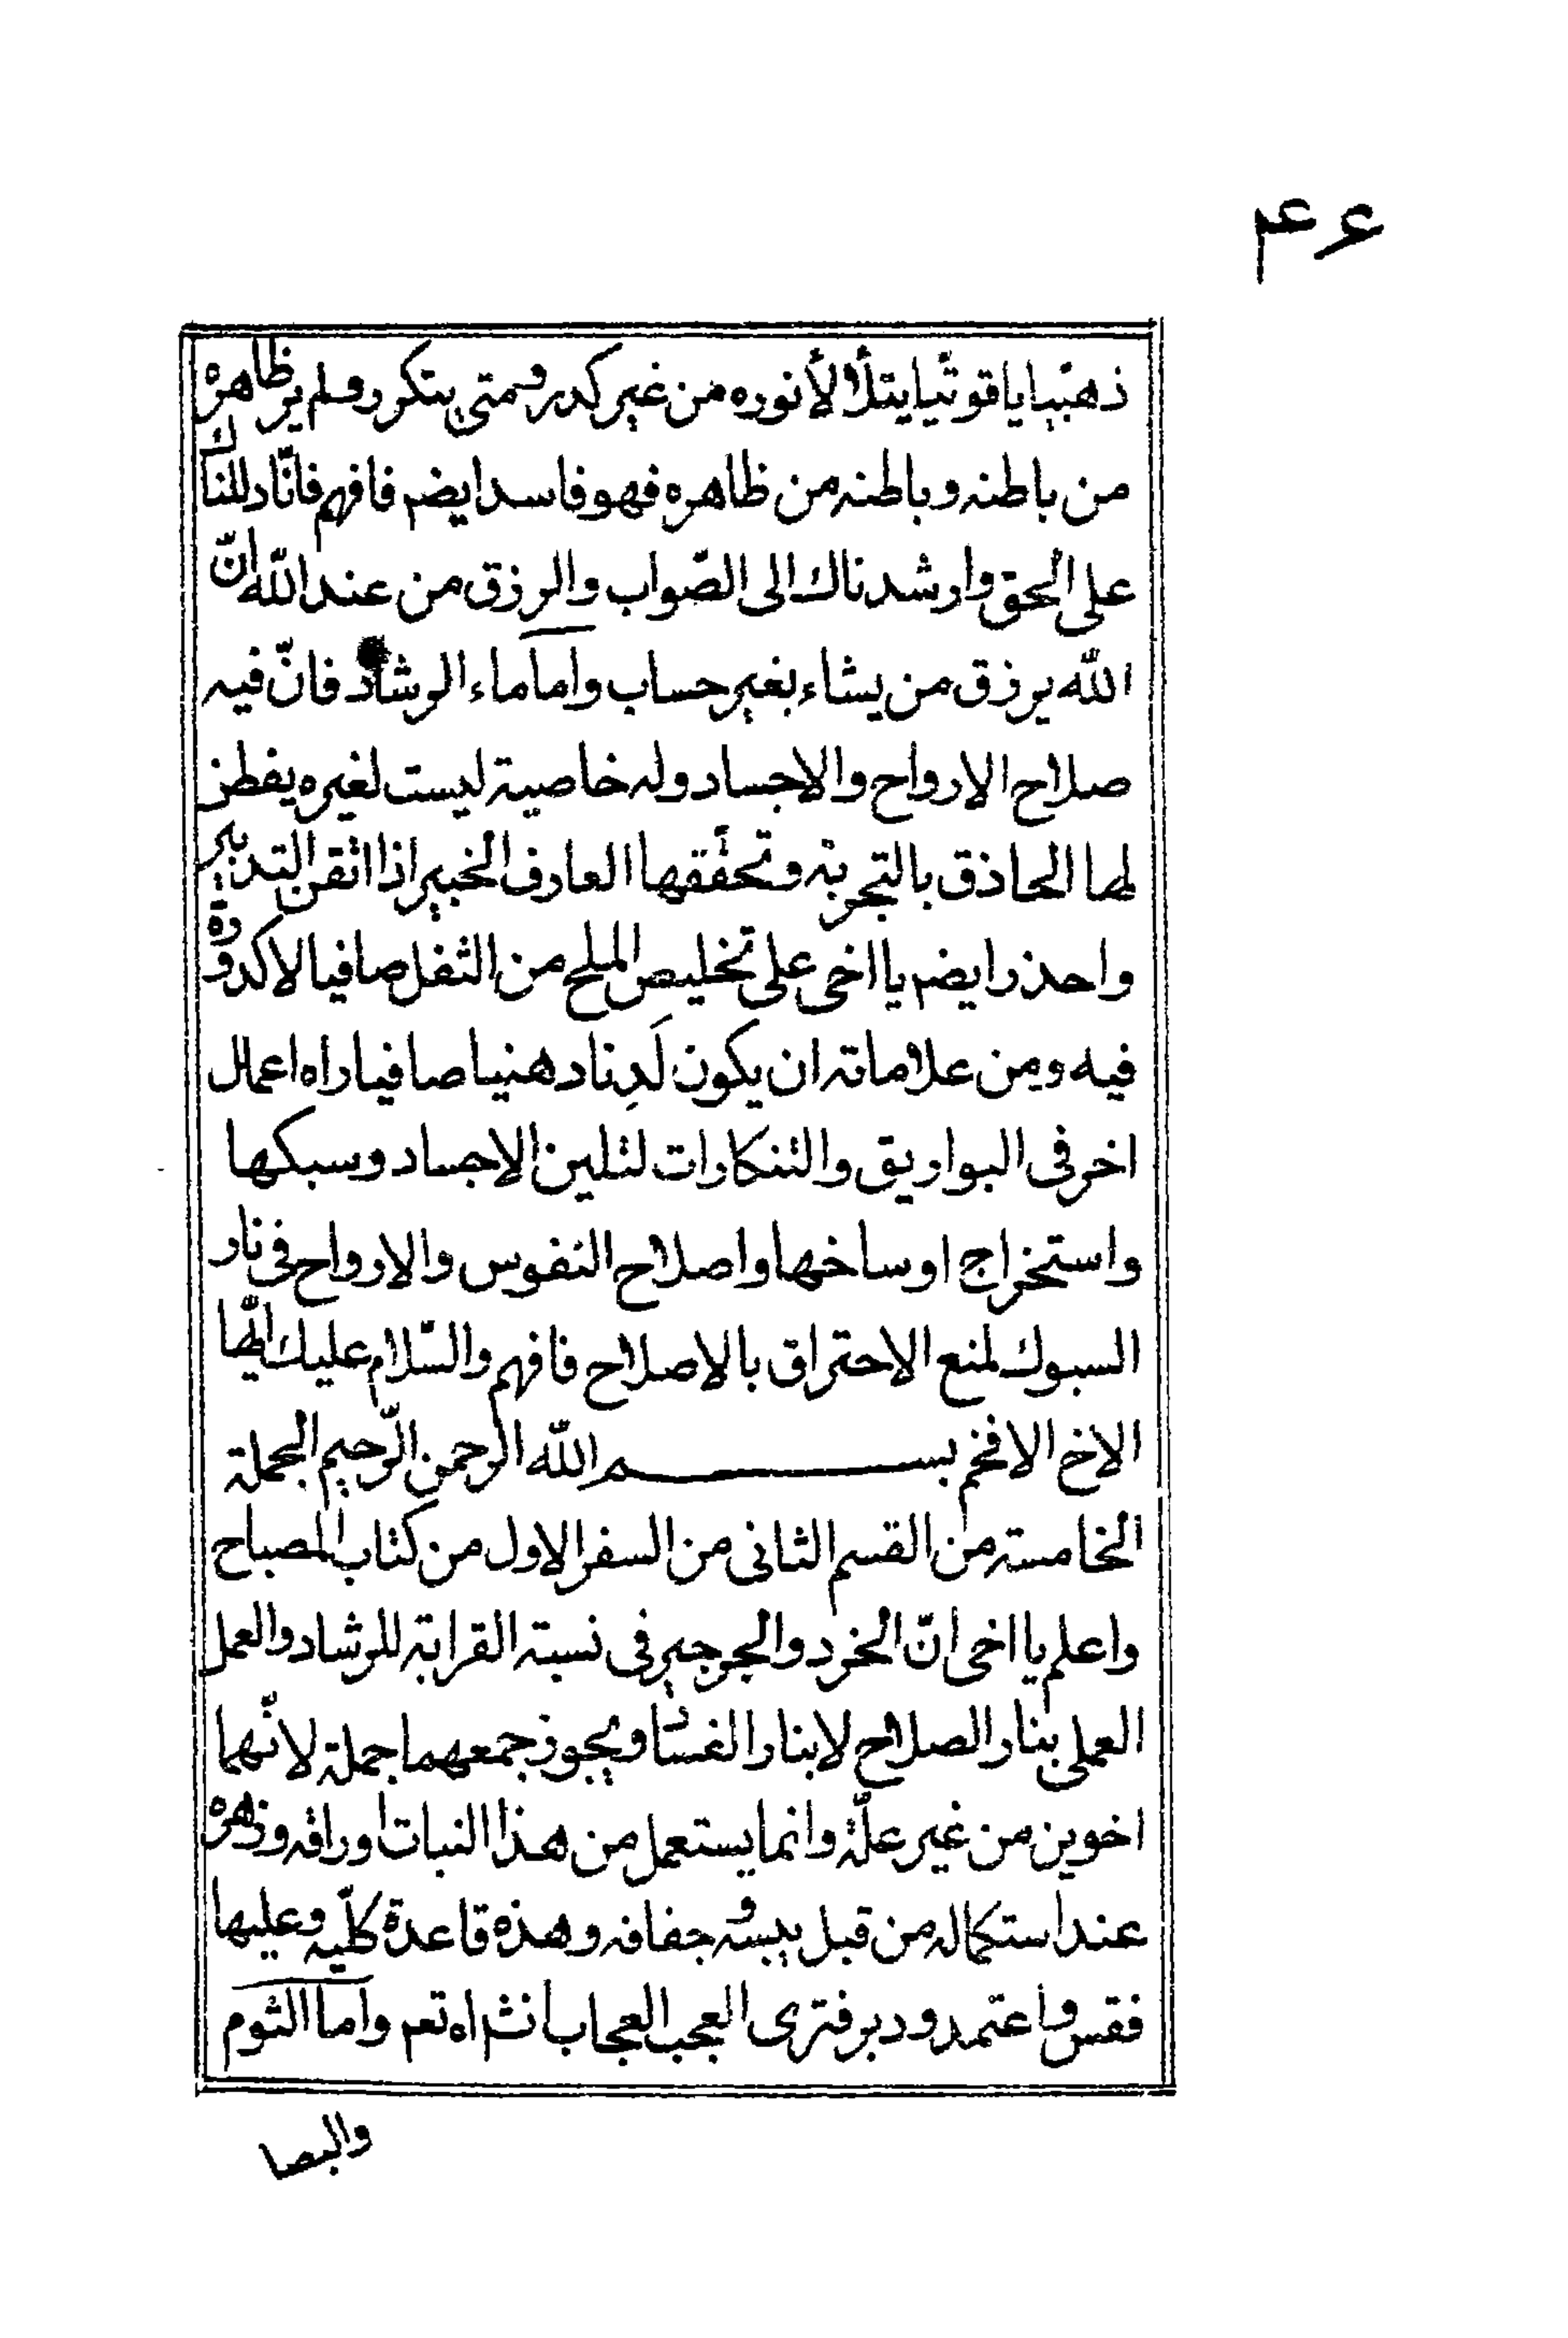 ذهبيا ياقوتيا يتلألأ نوره من غير كدر ومتى يتكرر ولم ير ظاهره
من باطنه وباطنه من ظاهره فهو فاسد ايضم فافهم فانّا دللناك
على الحق وارشدناك الى الصّواب والرزق من عند اللّه انّ
اللّه يرزق من يشاء بغير حساب واما ماء الرشاد فانّ فيه
صلاح الارواح والاجساد وله خاصية ليست لغيره يفطن
لها الحاذق بالتجربة وتحققها العارف الخبير اذا اتقن التدبير
واحذر ايضم يا اخى على تخليص الملح من الثفل صافيا لا كدورة
فيه ومن علاماته ان يكون لَدِنا دهنيا صافيا راه اعمال
اخر فى البواريق والتنكارات لتلين الاجساد وسبكها
واستخراج اوساخها واصلاح النفوس والارواح فى نار
السبوك لمنع الاحتراق بالاصلاح فافهم والسّلام عليك ايّها
الاخ الافخم بسم اللّه الرحمن الرّحيم الجملة
الخامسة من القسم الثانى من السفر الاول من كتاب المصباح
واعلم يا اخى انّ الخرد والجرجير فى نسبة القرابة للرشاد والعمل
العملى بنار الصلاح لا بنار الفساد ويجوز جمعهما جملة لانّهما
اخوين من غير علّة وانما يستعمل من هذا النبات اوراقه وزهره
عند استكماله من قبل يبسه وجفافه وهذه قاعدة كلّيه وعليها
فقس واعتمد ودبر فترى العجب العجاب انش اه تعم واما الثوم
والبصا